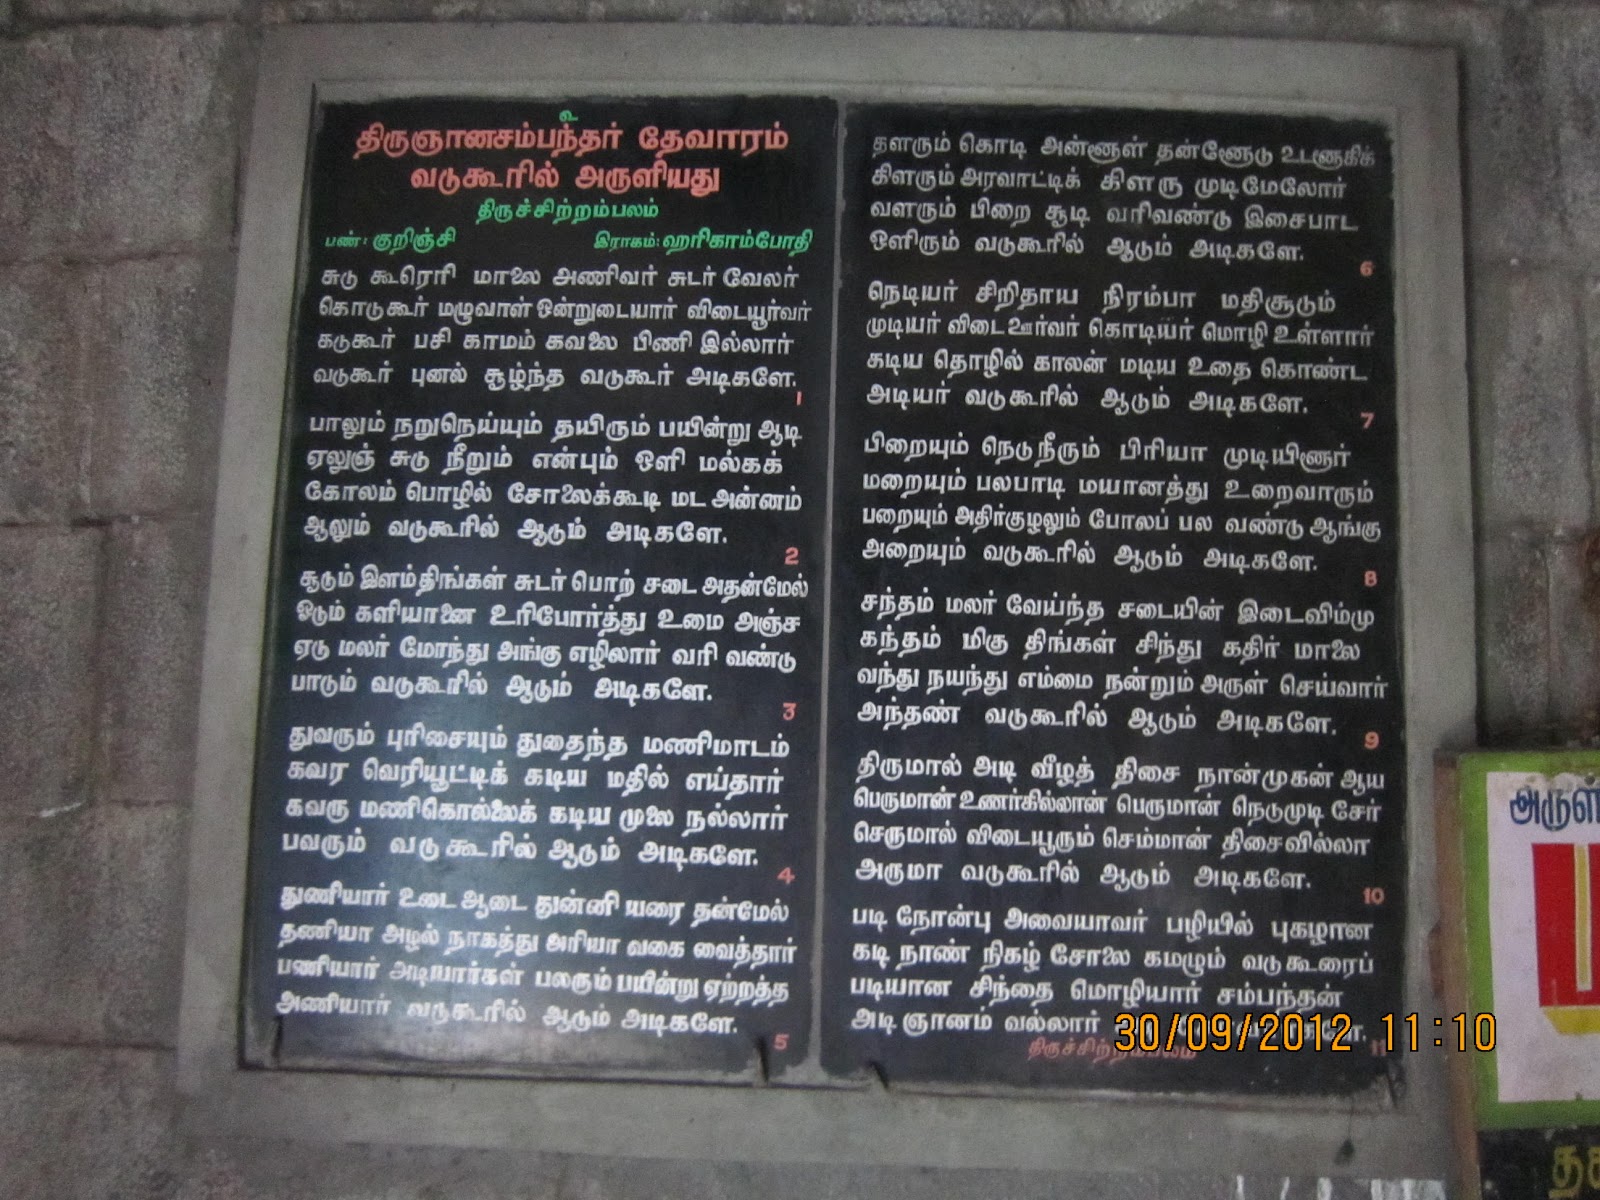 உ
திருஞானசம்பந்தர் தேவாரம்
வடுகூரில் அருளியது
திருச்சிற்றம்பலம்
பண்: குறிஞ்சி இராகம்: ஹரிகாம்போதி
சுடு கூரெரி மாலை அணிவர் சுடர் வேலர்
கொடுகூர் மழுவாள் ஒன்றுடையார் விடையூர்வர்
கடுகூர் பசி காமம் கவலை பிணி இல்லார்
வடுகூர் புனல் சூழ்ந்த வடுகூர் அடிகளே.
1
பாலும் நறுநெய்யும் தயிரும் பயின்று ஆடி
ஏலுஞ் சுடு நீறும் என்பும் ஒளி மல்கக்
கோலம் பொழில் சோலைக்கூடி மட அன்னம்
ஆலும் வடுகூரில் ஆடும் அடிகளே.
2
சூடும் இளம்திங்கள் சுடர் பொற் சடை அதன்மேல்
ஓடும் களியானை உரிபோர்த்து உமை அஞ்ச
ஏடு மலர் மோந்து அங்கு எழிலார் வரி வண்டு
பாடும் வடுகூரில் ஆடும் அடிகளே.
3
துவரும் புரிசையும் துதைந்த மணிமாடம்
கவர வெரியூட்டிக் கடிய மதில் எய்தார்
கவரு மணிகொல்லைக் கடிய முலை நல்லார்
பவரும் வடுகூரில் ஆடும் அடிகளே.
4
துணியார் உடை ஆடை துன்னி யரை தன்மேல்
தணியா அழல் நாகத்து அரியா வகை வைத்தார்
பணியார் அடியார்கள் பலரும் பயின்று ஏற்றத்த
அணியார் வடுகூரில் ஆடும் அடிகளே.
5
தளரும் கொடி அன்னாள் தன்னோடு உடனாகிக்
கிளரும் அரவாட்டிக் கிளரு முடிமேலோர்
வளரும் பிறை சூடி வரிவண்டு இசைபாட
ஒளிரும் வடுகூரில் ஆடும் அடிகளே.
6
நெடியர் சிறிதாய நிரம்பா மதிசூடும்
முடியர் விடை ஊர்வர் கொடியர் மொழி உள்ளார்
கடிய தொழில் காலன் மடிய உதை கொண்ட
அடியர் வடுகூரில் ஆடும் அடிகளே.
7
பிறையும் நெடுநீரும் பிரியா முடியினார்
மறையும் பலபாடி மயானத்து உறைவாரும்
பறையும் அதிர்குழலும் போலப் பல வண்டு ஆங்கு
அறையும் வடுகூரில் ஆடும் அடிகளே.
8
சந்தம் மலர் வேய்ந்த சடையின் இடைவிம்மு
கந்தம் மிகு திங்கள் சிந்து கதிர் மாலை
வந்து நயந்து எம்மை நன்றும் அருள் செய்வார்
அந்தண் வடுகூரில் ஆடும் அடிகளே.
9
திருமால் அடி வீழத் திசை நான்முகன் ஆய
பெருமான் உணர்கில்லான் பெருமான் நெடுமுடி சேர்
செருமால் விடையூரும் செம்மான் திசைவில்லா
அருமா வடுகூரில் ஆடும் அடிகளே.
10
படி நோன்பு அவையாவர் பழியில் புகழான
கடி நாண் நிகழ் சோலை கமழும் வடுகூரைப்
படியான சிந்தை மொழியார் சம்பந்தன்
அடி ஞானம் வல்லார்
திருச்சிற்றம்பலம் 11
30/09/2012 11:10
அருள்